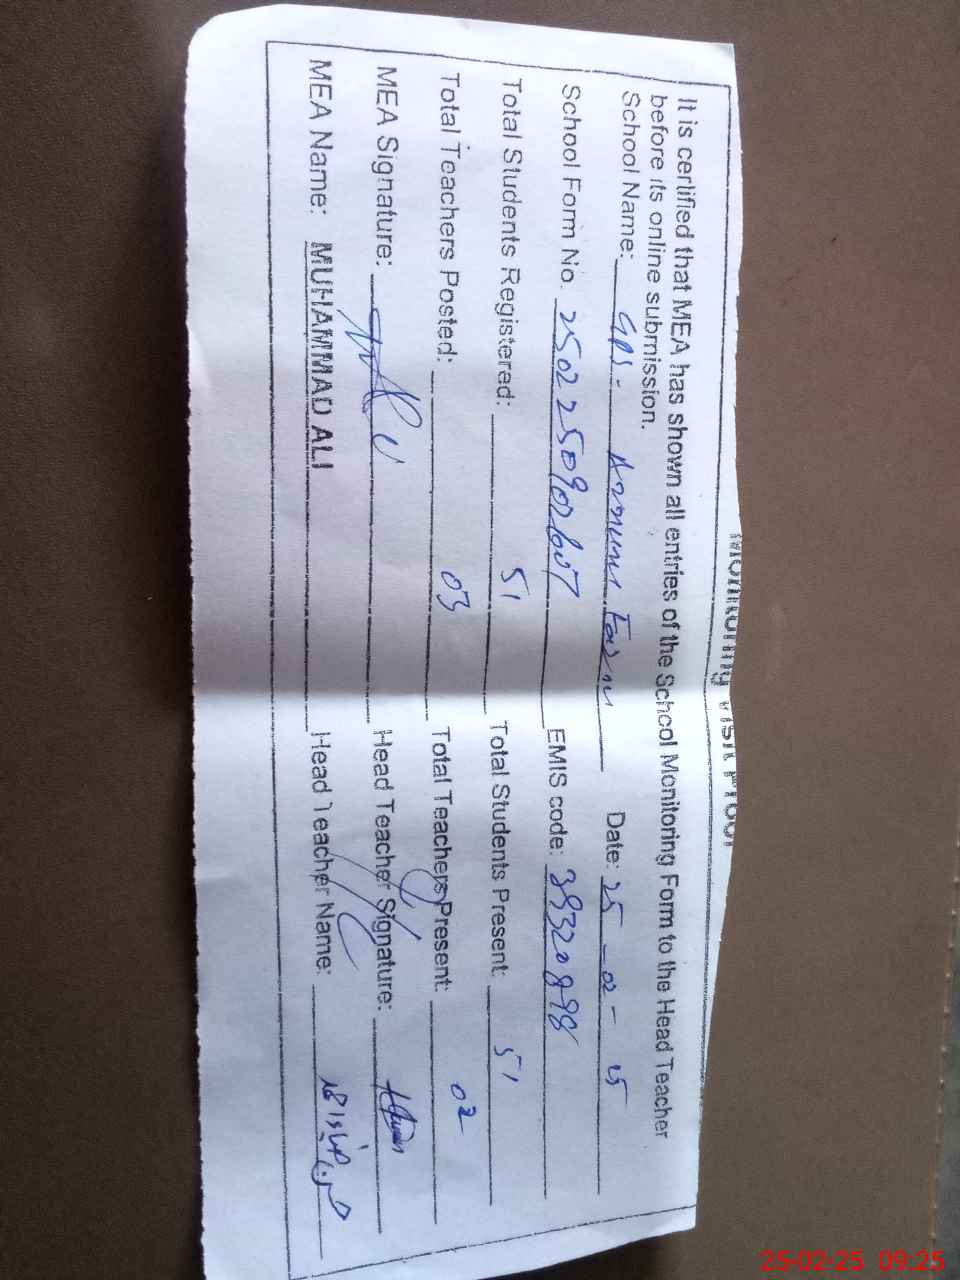 Monitoring Visit Proof
It is certified that MEA has shown all entries of the School Monitoring Form to the Head Teacher
before its online submission.
School Name: GPS - Date: 25-02-25
School Form No. EMIS code: 39320898
Total Students Registered: 51 Total Students Present: 51
Total Teachers Posted: 03 Total Teachers Present: 02
MEA Signature: Head Teacher Signature:
MEA Name: MUHAMMAD ALI Head Teacher Name:
25-02-25 09:25